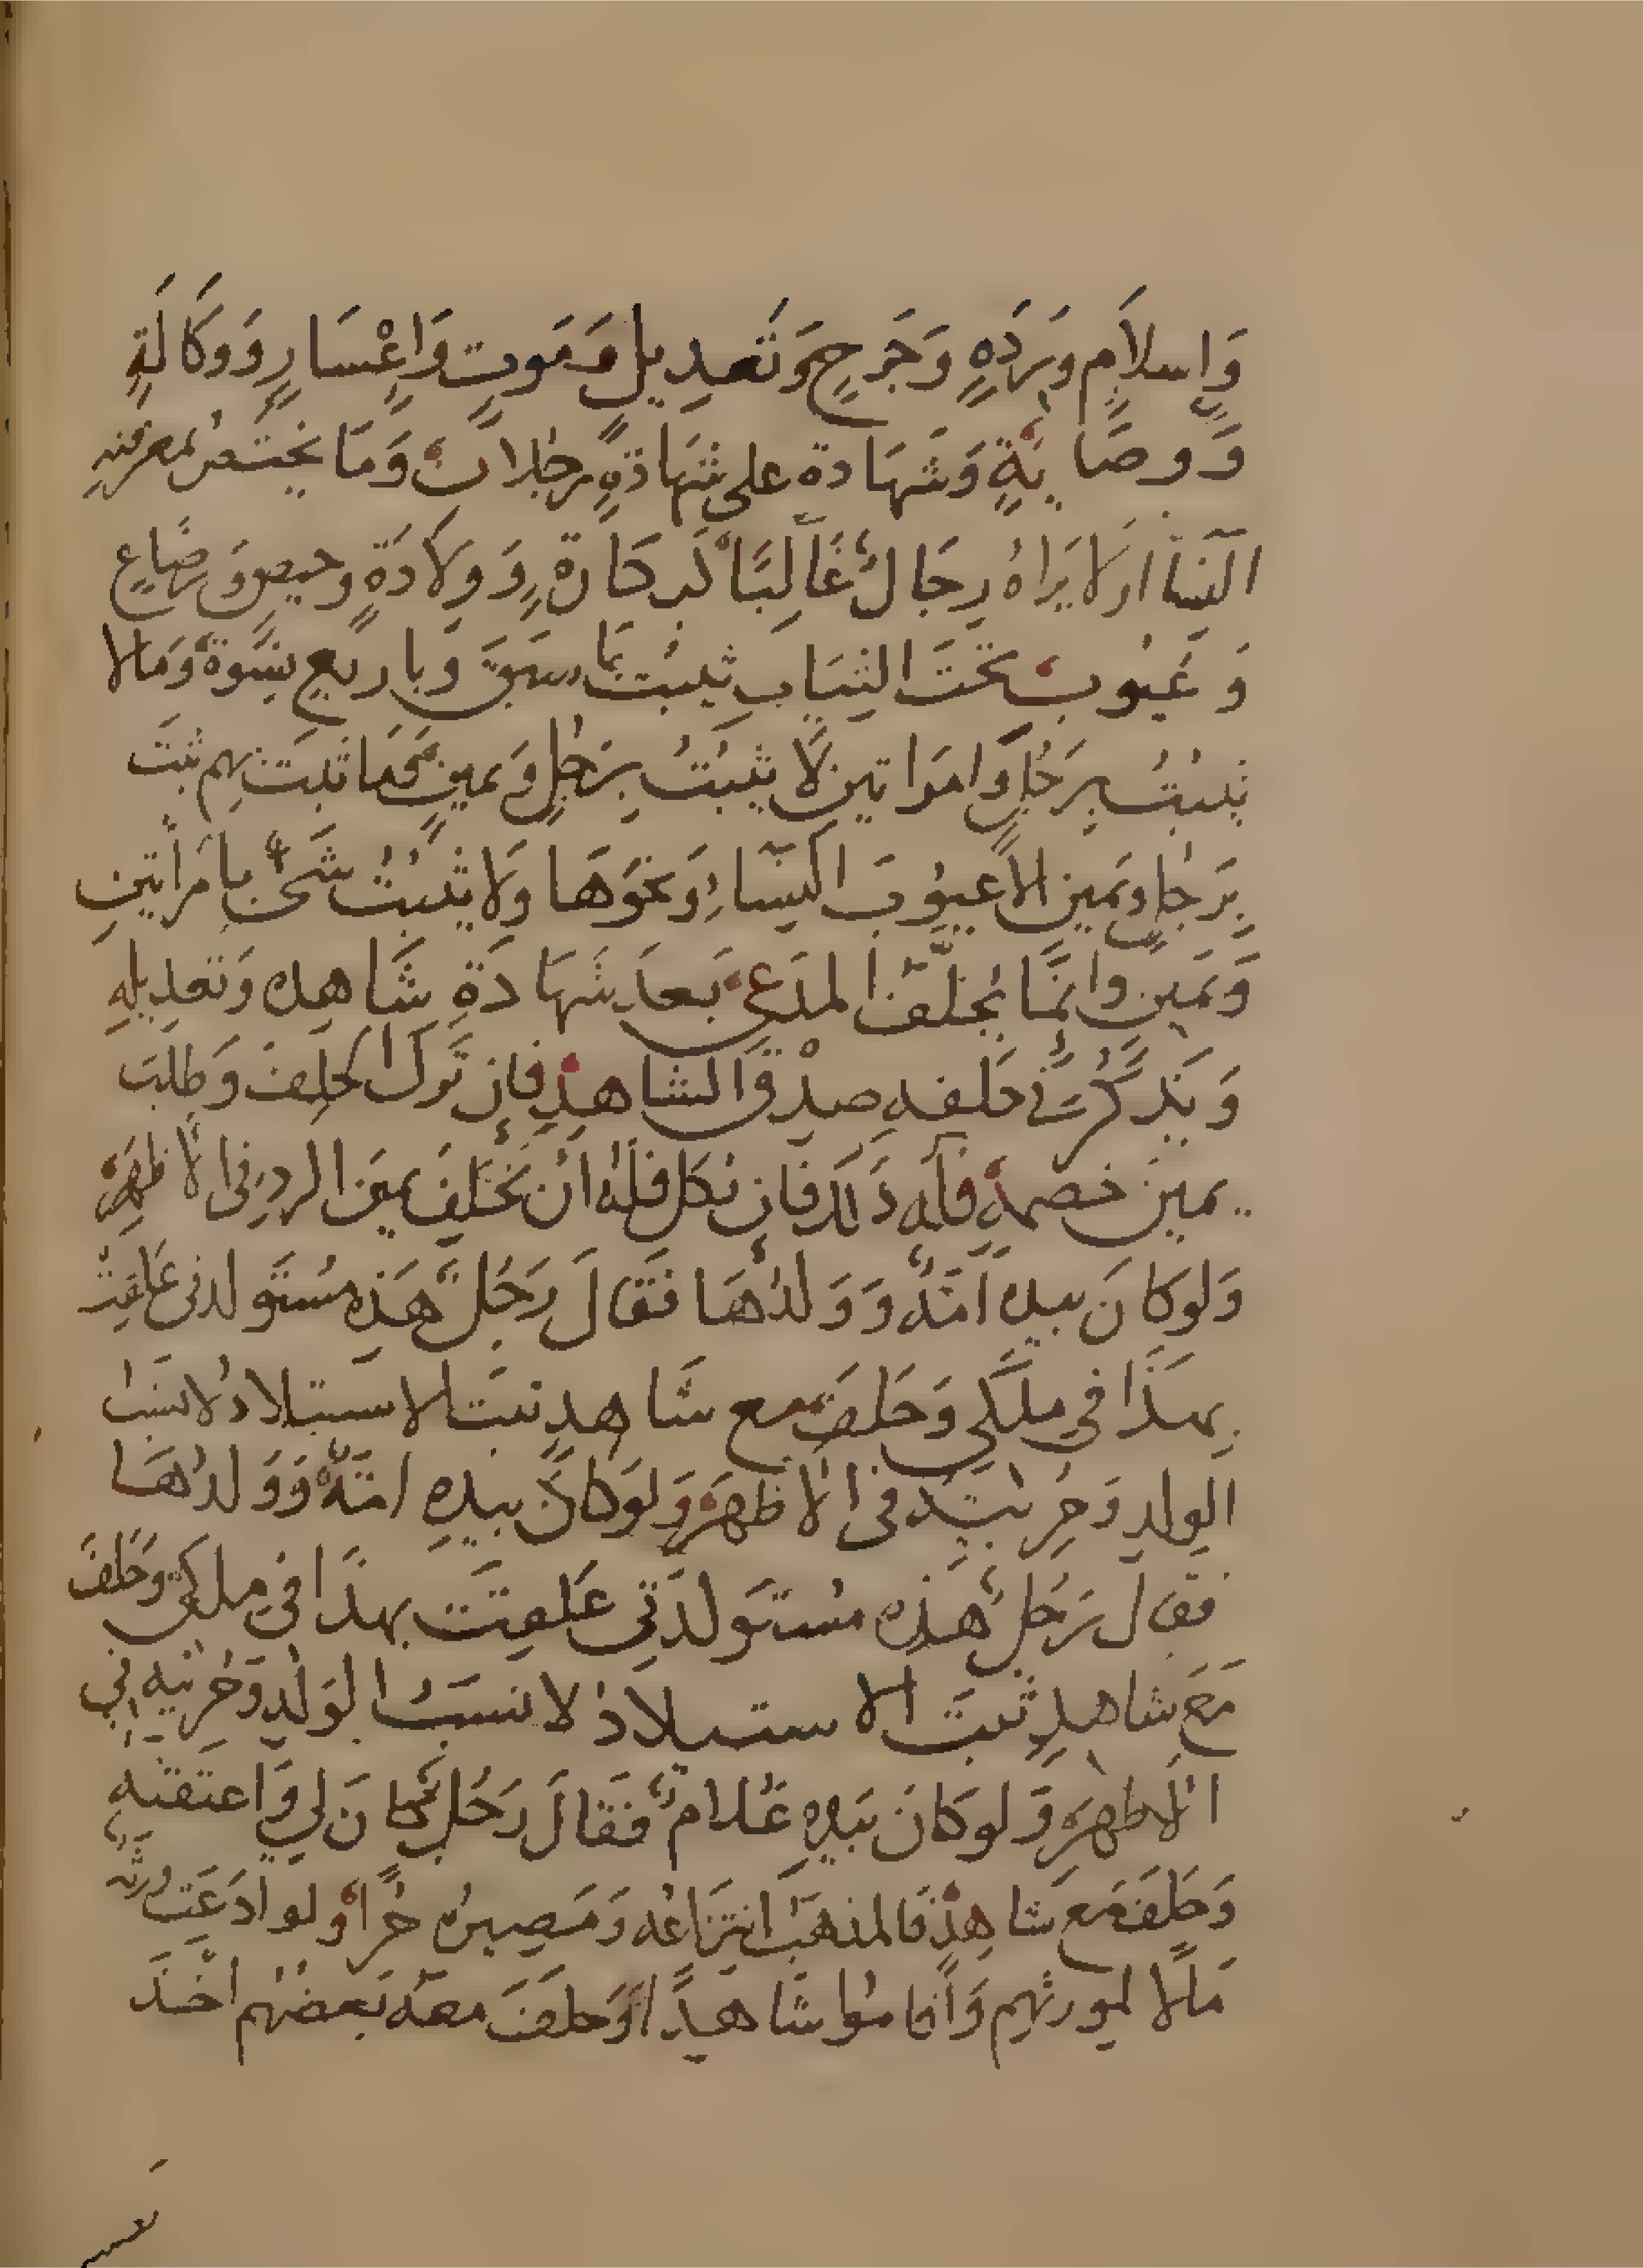 وَاِسلاَمٍ وَرِدَّهٍ وَجَرحٍ وَتَعدِيلٍ وَمَوتٍ وَاِعْسَارٍ وَوَكَالَةٍ
وَوِصَايَةٍ وَشَهَادة على شَهَادَةٍ رجلان وَمَا يَختَصُّ بمعرفته
النسآ او لا يَراهُ رِجَالٌ غَالِبًا كبكارة وَوِلَادَةٍ وحيض وَرضَاعٍ
وَعُيُوبٌ تحتَ الثيَابِ يثبت بما سبَقَ وَبا ربع نِسوة وَمَا لا
يثبتُ بِرَجُلٍ وَامراتين لَا يثبُتُ بِرَجلٍ وَيمينٍ وَمَا ثبت بهم ثبتَ
بِرَجلٍ ويَمين الا عيُوبَ النِسَاءِ وَنحَوَهَا وَلا يثبُتُ شَئٌ بامرأتينِ
وَيَمينٍ وانّمَا يُحلَّفُ المدَعي بَعدَ شَهَادَةِ شَاهِده وَتعدِيلِهِ
وَيَذكُرُ في حَلفهِ صِدْقَ الشاهِدِ فان تَركَ الحلِفَ وَطلبَ
يمينَ خصمهِ فلَه ذَلك فان نكل فلهُ انْ يحْلِفَ يمينَ الرد في الا ظهَرِ
وَلو كانَ بيده اَمَةٌ وَوَلدُهَا فَقَالَ رَجُلٌ هَذِه مُستَولدتى عَلِقتْ
بِهذَا في مِلكي وَحَلفَ مع شَاهدٍ ثبَتَ الاستيلادُ لا نسَبُ
الولدِ وَحُريته في الا ظهَرِ وَلو كانَ بيدِهِ امَةٌ وَوَلدُهَا
فقال رَجُلٌ هَذِه مُستَولدَتِي عَلِقَت بهذَا في ملكي وَحَلفَ
مَعَ شاهدٍ ثبَتَ الا ستيلادُ لا نسَبُ الوَلدِ وَحُريتِه في
الاظهرِ وَلو كانَ بيَدِهِ غلامٌ فَقَالَ رَجُلٌ كَانَ لِي وَاعتَقتهُ
وَحَلفَ مَع شاهِدٍ فالمذهَبُ انتِزَاعُه وَمَصِيرُه حُرًا وَلو ادعَت ورثة
مَالًا لمورثِهِم وَأَقامُوا شاهِدًا وَحلفَ معَهُ بَعضُهُم اخَذَ